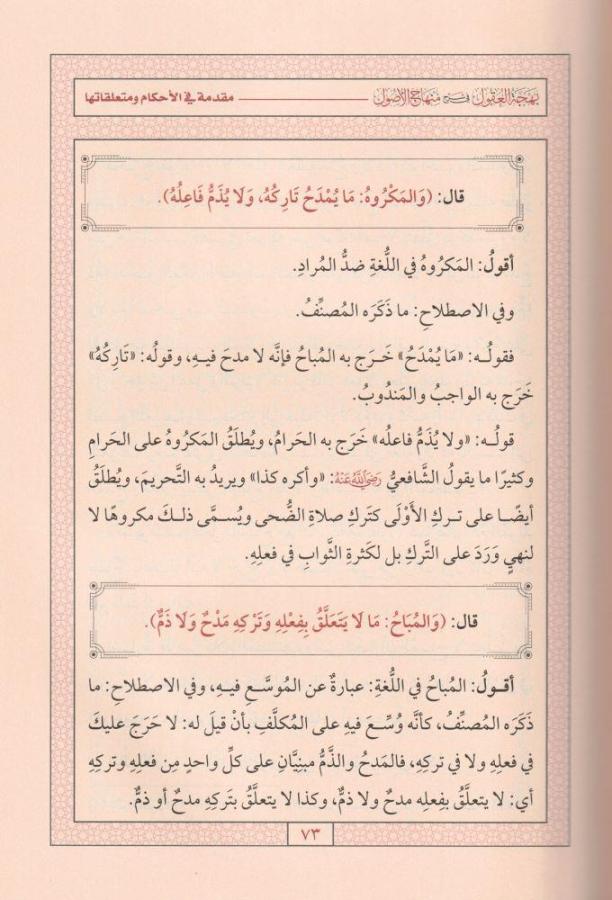 بهجة العقول في شرح منهاج الأصول
مقدمة في الأحكام ومتعلقاتها
قال: (وَالمَكْرُوهُ: مَا يُمْدَحُ تَارِكُهُ، وَلَا يُذَمُّ فَاعِلُهُ).
أقولُ: المَكرُوهُ في اللُّغةِ ضدُّ المُرادِ.
وفي الاصطلاحِ: ما ذَكَرَه المُصنِّفُ.
فقولُـه: «مَا يُمْدَحُ» خَـرَج به المُباحُ فإنَّه لا مدحَ فيـهِ، وقولُه: «تَارِكُهُ»
خَرَج به الواجبُ والمَندُوبُ.
قولُـه: «ولا يُذَمُّ فاعلُه» خَرَج به الحَرامُ، ويُطلَقُ المَكرُوهُ على الحَرامِ
وكثيرًا ما يقولُ الشَّافعيُّ رَضِيَ اللَّهُ عَنْهُ: «وأكره كذا» ويريدُ به التَّحريمَ، ويُطلَقُ
أيضًـا على تـركِ الأَوْلَى كتَركِ صلاةِ الضُّحى ويُسـمَّى ذلـك مكروهًا لا
لنهيٍ وَرَدَ على التَّركِ بل لكَثرةِ الثَّوابِ في فعلِهِ.
قال: (وَالمُبَاحُ: مَا لَا يَتَعَلَّقُ بِفِعْلِهِ وَتَرْكِهِ مَدْحٌ وَلَا ذَمٌّ).
أقـولُ: المُباحُ في اللُّغةِ: عبارةٌ عن المُوسَّـعِ فيـهِ، وفي الاصطلاحِ: ما
ذَكَرَه المُصنِّفُ، كأنَّه وُسِّعَ فيهِ على المُكلَّفِ بأنْ قيلَ له: لا حَرَجَ عليكَ
في فعلِهِ ولا في تركِهِ، فالمَدحُ والذَّمُّ مبنِيَّانِ على كلِّ واحدٍ مِن فعلِهِ وتركِهِ
أي: لا يتعلَّقُ بفِعلِه مدحٌ ولا ذمٌّ، وكذا لا يتعلَّقُ بتَركِهِ مدحٌ أو ذمٌّ.
٧٣